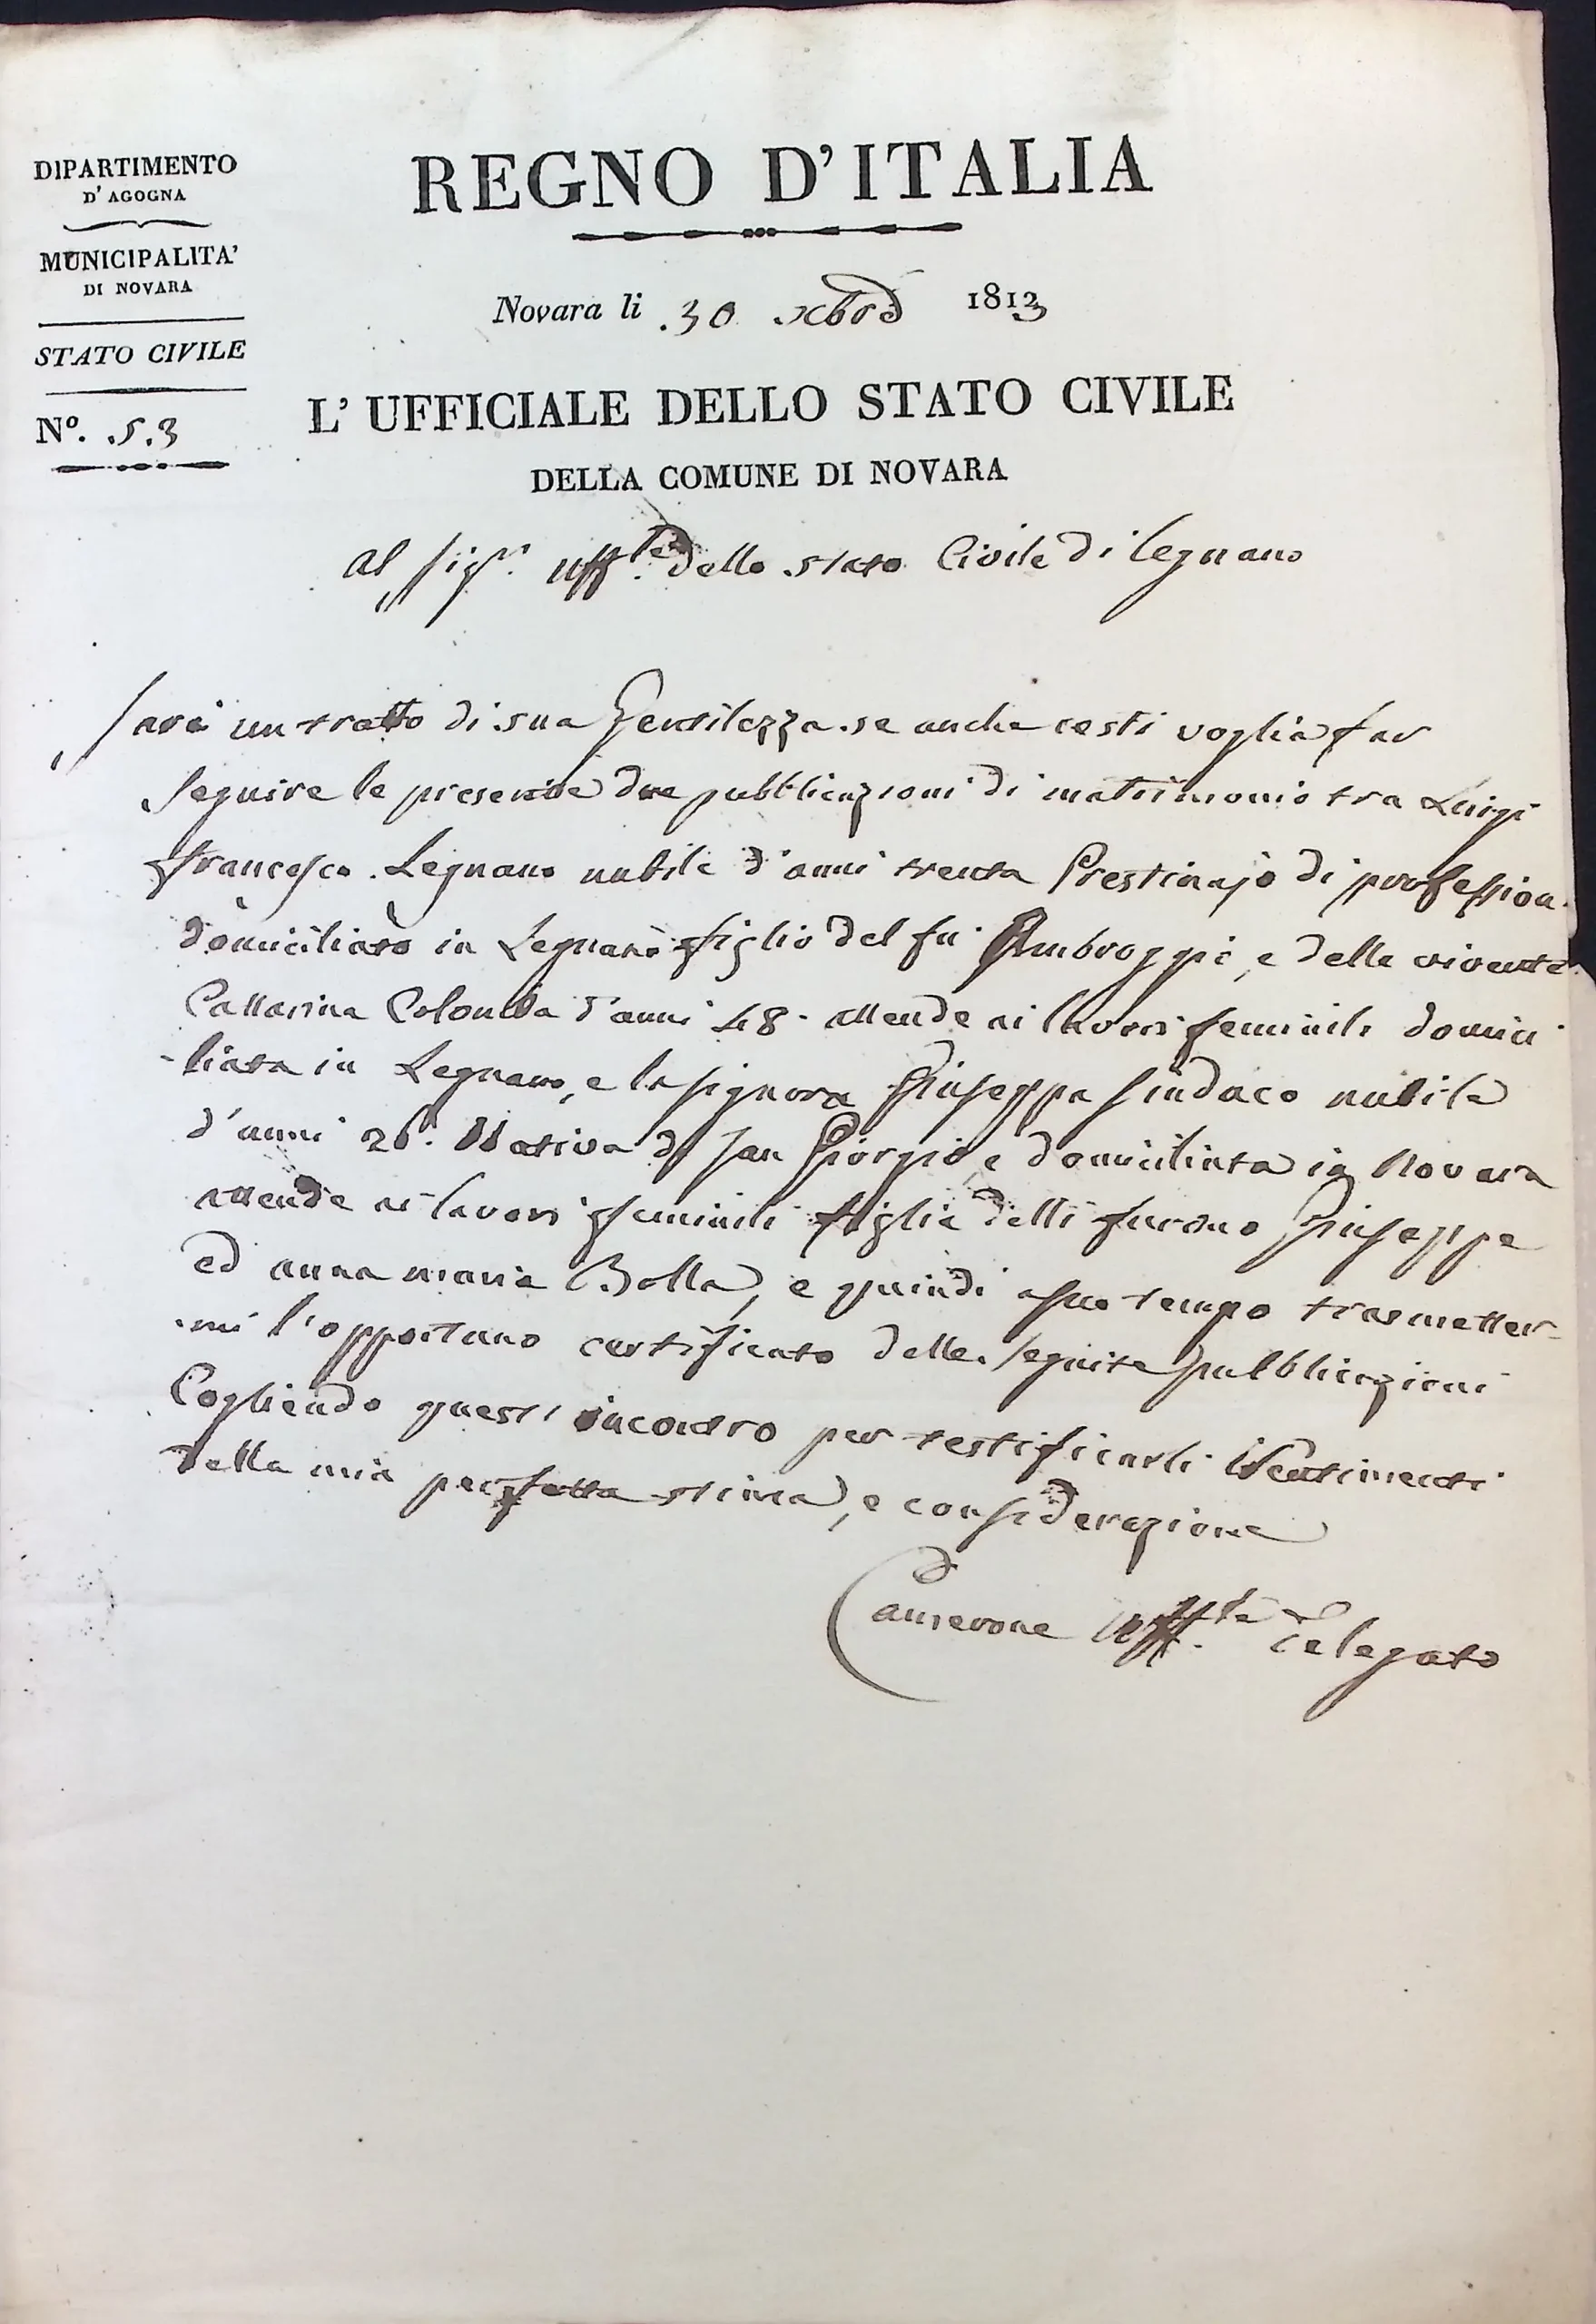 DIPARTIMENTO
D' AGOGNA
MUNICIPALITA'
DI NOVARA
STATO CIVILE
Nº. 53
REGNO D'ITALIA
Novara li 30 xbre 1813
L' UFFICIALE DELLO STATO CIVILE
DELLA COMUNE DI NOVARA
Al Sigr. Uff.le dello stato Civile di Legnano
Sarà un tratto di sua Gentilezza se anche costi voglia far
Seguire le presente due pubblicazioni di matrimonio tra Luigi
Francesco Legnano nubile d'anni trenta Prestinajo di profession
domiciliato in Legnano figlio del fu Ambroggio, e della vivente
Cattarina Colomba d'anni 48. attende ai lavori feminili domici
liata in Legnano, e la signora Giuseppa Sindaco nubile
d'anni 26. Nativa di San Giorgio, e domiciliata in Novara
attende ai lavori feminili figlia delli furono Giuseppe
ed anna maria Bolla, e quindi a suo tempo trasmetter
mi l'opportuno certificato delle seguite pubblicazioni
Cogliendo quest' incontro per testificarli i Sentimenti
della mia perfetta stima, e considerazione
Uff.le Delegato